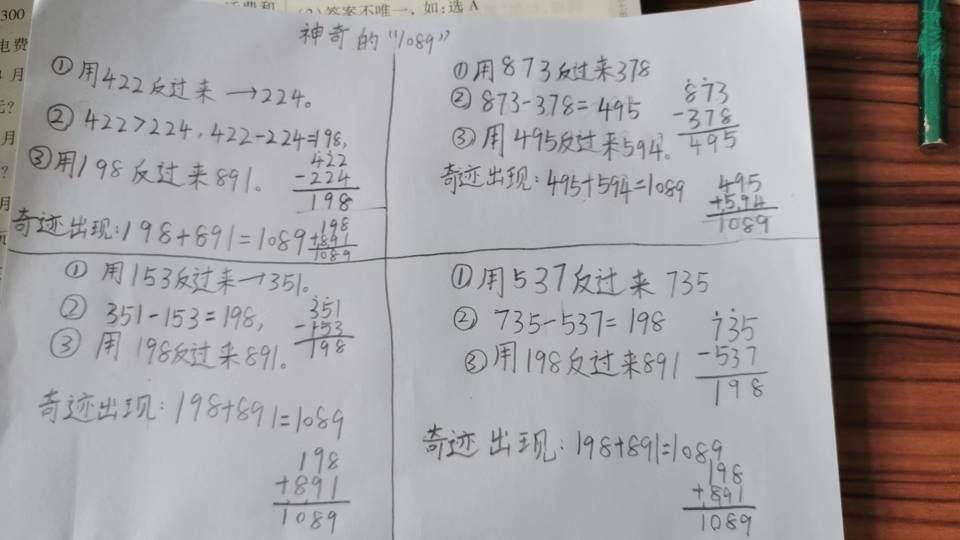 300
电费
月
元?
月
?
月
元
(2)答案不唯一,如:选A
神奇的“1089”
①用422反过来→224。
②422>224,422-224=198,
③用198反过来891。
422
-224
198
奇迹出现:198+891=1089
198
+891
1089
①用873反过来378
②873-378=495
③用495反过来594。
873
-378
495
奇迹出现:495+594=1089
495
+594
1089
①用153反过来→351。
②351-153=198,
③用198反过来891。
351
-153
198
奇迹出现:198+891=1089
198
+891
1089
①用537反过来735
②735-537=198
③用198反过来891
735
-537
198
奇迹出现:198+891=1089
198
+891
1089